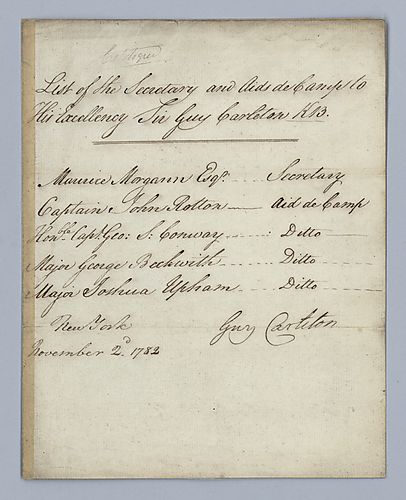 Copied
List of the Secretary and Aids de Camp to
His Excellency Sir Guy Carleton KB.
Maurice Morgann Esqr. Secretary
Captain John Rotton Aid de Camp
Honble. Capt. Geo: S: Conway Ditto
Major George Beckwith Ditto
Major Joshua Upham Ditto
New York
November 2d. 1782
Guy Carleton